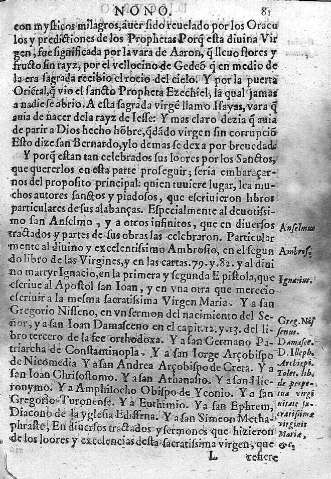 NONO. 81
con mysticos milagros, auer sido reuelado por los Oracu
los y predictiones de los Prophetas Porq̃ esta diuina Vir
gen, fue significada por la vara de Aaron, q̃ lleuo flores y
fructo sin rayz, por el vellocino de Gedeõ q̃ en medio de
la era sagrada recibio el rocio del cielo. Y por la puerta
Oriẽtal, q̃ vio el sancto Propheta Ezechiel, la qual jamas
a nadie se abrio. A esta sagrada virgẽ llamo Isayas, vara q̃
auia de nacer de la rayz de Iesse: Y mas claro dezia q̃ auia
de parir a Dios hecho hõbre, q̃dãdo virgen sin corrupciõ
Esto dize san Bernardo, y lo demas se dexa por breuedad
Y porq̃ estan tan celebrados sus loores por los Sanctos,
que quererlos en esta parte proseguir, seria embaraçar-
nos del proposito principal: quien tuuiere lugar, lea mu
chos autores sanctos y piadosos, que escriuieron libros
particulares de sus alabanças. Especialmente al deuotissi
mo san Anselmo, y a otros infinitos, que en diuersos
tractados y partes de sus obras las celebraron. Particular
mente al diuino y excelentissimo Ambrosio, en el segun
do libro de las Virgines, y en las cartas. 79. y. 82. y al diui
no martyr Ignacio, en la primera y segunda Epistola, que
escriue al Apostol san Ioan, y en vna otra que merecio
escriuir a la mesma sacratissima Virgen Maria. Y a san
Gregorio Nisseno, en vn sermon del nacimiento del Se-
ñor, y a san Ioan Damasceno en el capit. 12. y 13. del li-
bro tercero de la fee orthodoxa. Y a san Germano Pa-
triarcha de Constantinopla. Y a san Iorge Arçobispo
de Nicomedia Y a san Andrea Arçobispo de Creta. Y a
san Ioan Chrisostomo. Y a san Athanasio. Y a san Hie-
ronymo. Y a Amphilocho Obispo de Yconio. Y a san
Gregorio Turonense. Y a Euthimio. Y a san Ephrem,
Diacono de la yglesia Edissena. Y a san Simeon Metha-
phraste; En diuersos tractados y sermones que hizieron
de los loores y excelencias desta sacratissima virgen, que
L refiere
Anselmus
Ambros.
Ignatius.
Greg. Ni
ssenus.
Damasce.
D. Ileph.
Archiepi.
Tolet. lib.
de perpe-
tua virgi
nitate sa
cratissimæ
virginis
Mariæ,
&c.